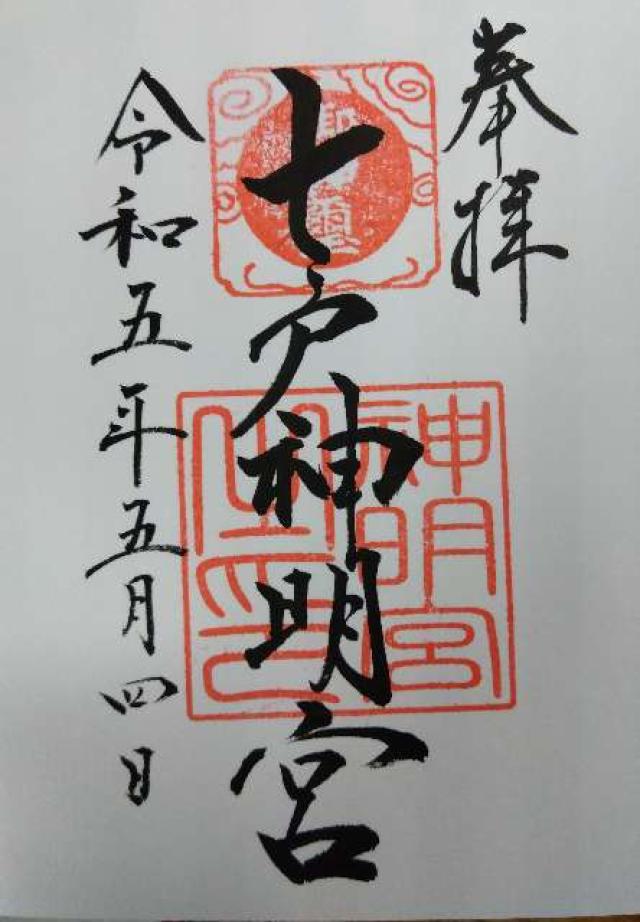 奉拝
七戸神明宮
神明宮之印
令和五年五月四日